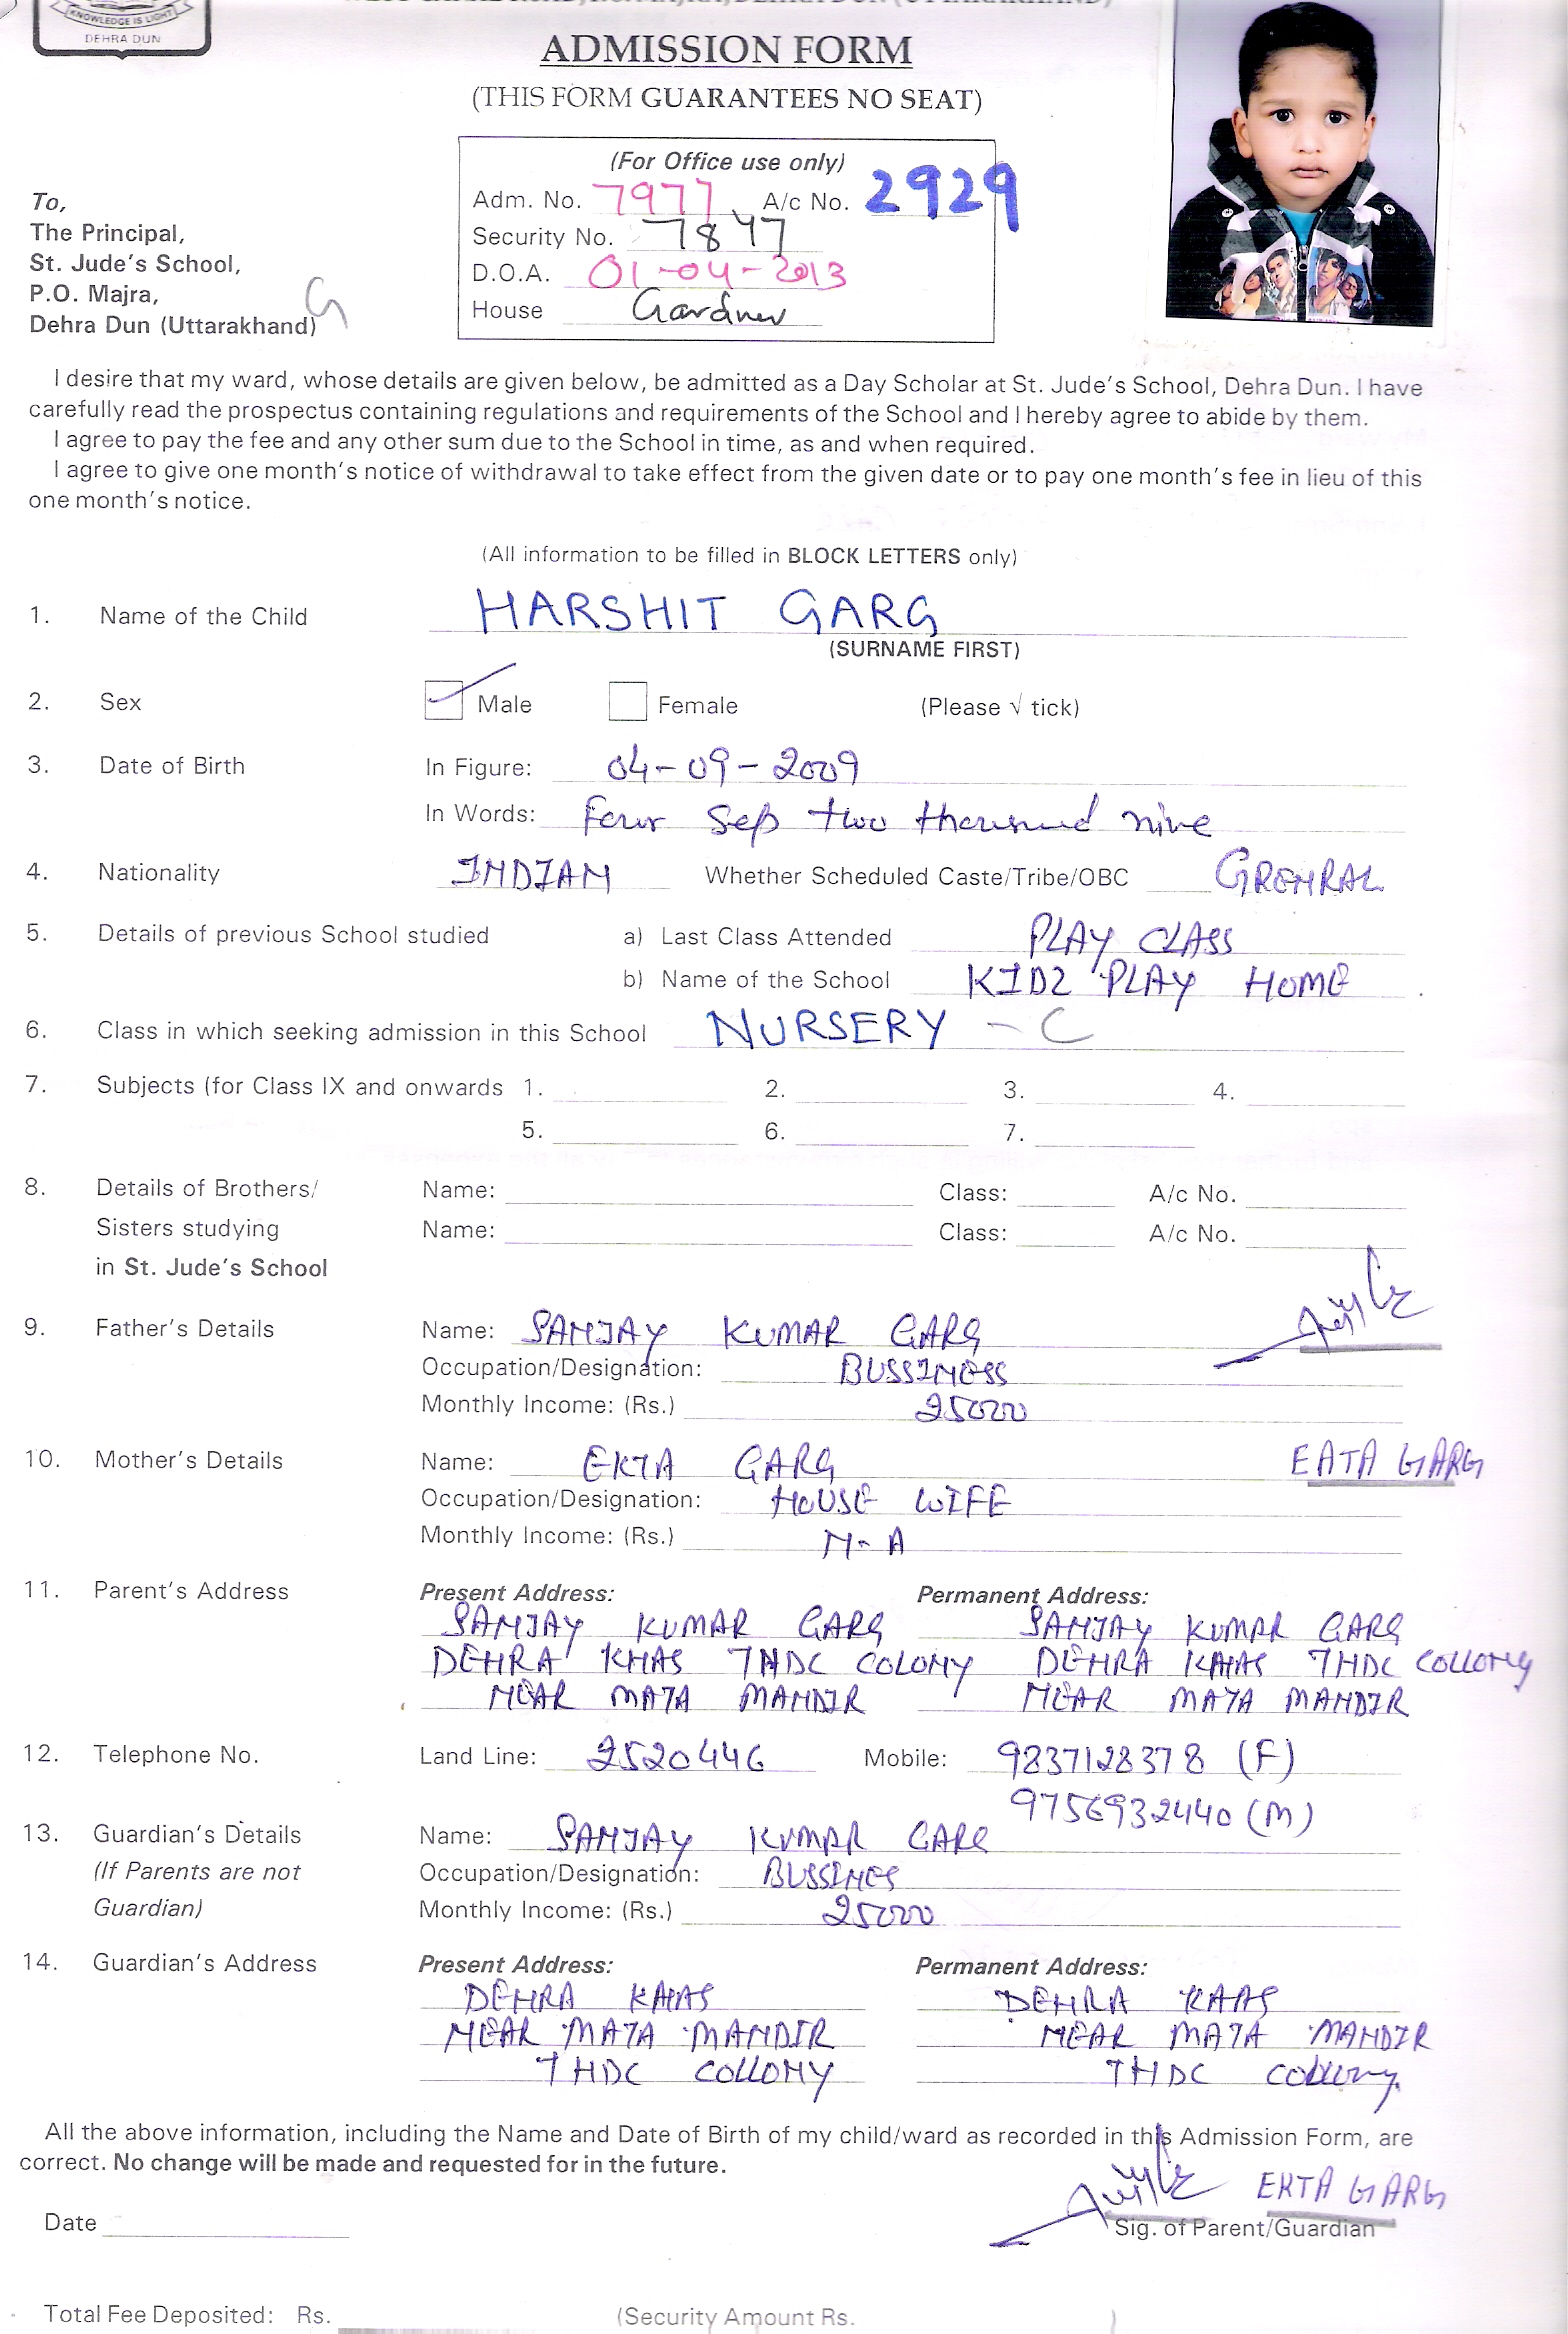 KNOWLEDGE IS LIGHT
DEHRA DUN
ADMISSION FORM
(THIS FORM GUARANTEES NO SEAT)
(For Office use only)
Adm. No. 7977 A/c No. 2929
Security No. 7847
D.O.A. 01-04-2013
House Gardner
To,
The Principal,
St. Jude's School,
P.O. Majra,
Dehra Dun (Uttarakhand)
G
I desire that my ward, whose details are given below, be admitted as a Day Scholar at St. Jude's School, Dehra Dun. I have
carefully read the prospectus containing regulations and requirements of the School and I hereby agree to abide by them.
I agree to pay the fee and any other sum due to the School in time, as and when required.
I agree to give one month's notice of withdrawal to take effect from the given date or to pay one month's fee in lieu of this
one month's notice.
(All information to be filled in BLOCK LETTERS only)
1. Name of the Child HARSHIT GARG
(SURNAME FIRST)
2. Sex Male Female (Please √ tick)
3. Date of Birth In Figure: 04-09-2009
In Words: Four Sep two thousand nine
4. Nationality INDIAN Whether Scheduled Caste/Tribe/OBC GRENRAL
5. Details of previous School studied a) Last Class Attended PLAY CLASS
b) Name of the School KIDZ PLAY HOME
6. Class in which seeking admission in this School NURSERY - C
7. Subjects (for Class IX and onwards 1. 2. 3. 4.
5. 6. 7.
8. Details of Brothers/ Name: Class: A/c No.
Sisters studying Name: Class: A/c No.
in St. Jude's School
9. Father's Details Name: SANJAY KUMAR GARG
Occupation/Designation: BUSSINESS
Monthly Income: (Rs.) 25000
10. Mother's Details Name: EKTA GARG EKTA GARG
Occupation/Designation: HOUSE WIFE
Monthly Income: (Rs.) N-A
11. Parent's Address Present Address: Permanent Address:
SANJAY KUMAR GARG SANJAY KUMAR GARG
DEHRA KHAS THDC COLONY DEHRA KHAS THDC COLLONY
NEAR MATA MANDIR NEAR MATA MANDIR
12. Telephone No. Land Line: 2520446 Mobile: 9837128378 (F)
9756932440 (M)
13. Guardian's Details Name: SANJAY KUMAR GARG
(If Parents are not Occupation/Designation: BUSSINES
Guardian) Monthly Income: (Rs.) 25000
14. Guardian's Address Present Address: Permanent Address:
DEHRA KHAS DEHRA KHAS
NEAR MATA MANDIR NEAR MATA MANDIR
THDC COLLONY THDC Collony
All the above information, including the Name and Date of Birth of my child/ward as recorded in this Admission Form, are
correct. No change will be made and requested for in the future.
EKTA GARG
Date Sig. of Parent/Guardian
Total Fee Deposited: Rs. (Security Amount Rs. )